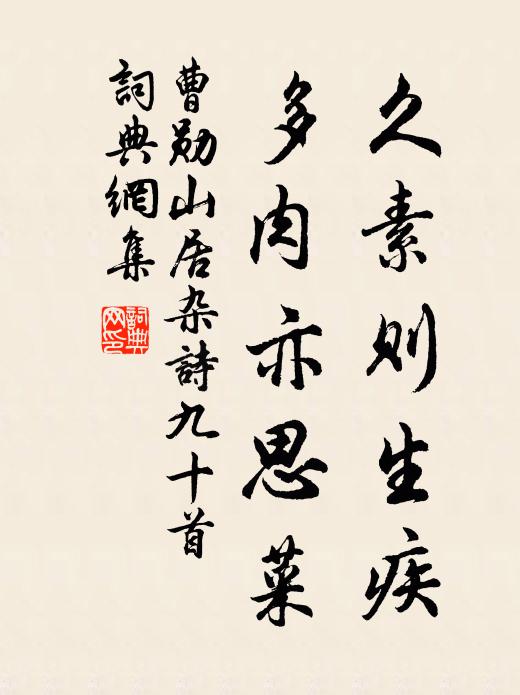 久素则生疾
多肉亦思菜
曹勋山居杂詩九十首
詞典網集
詞典网印